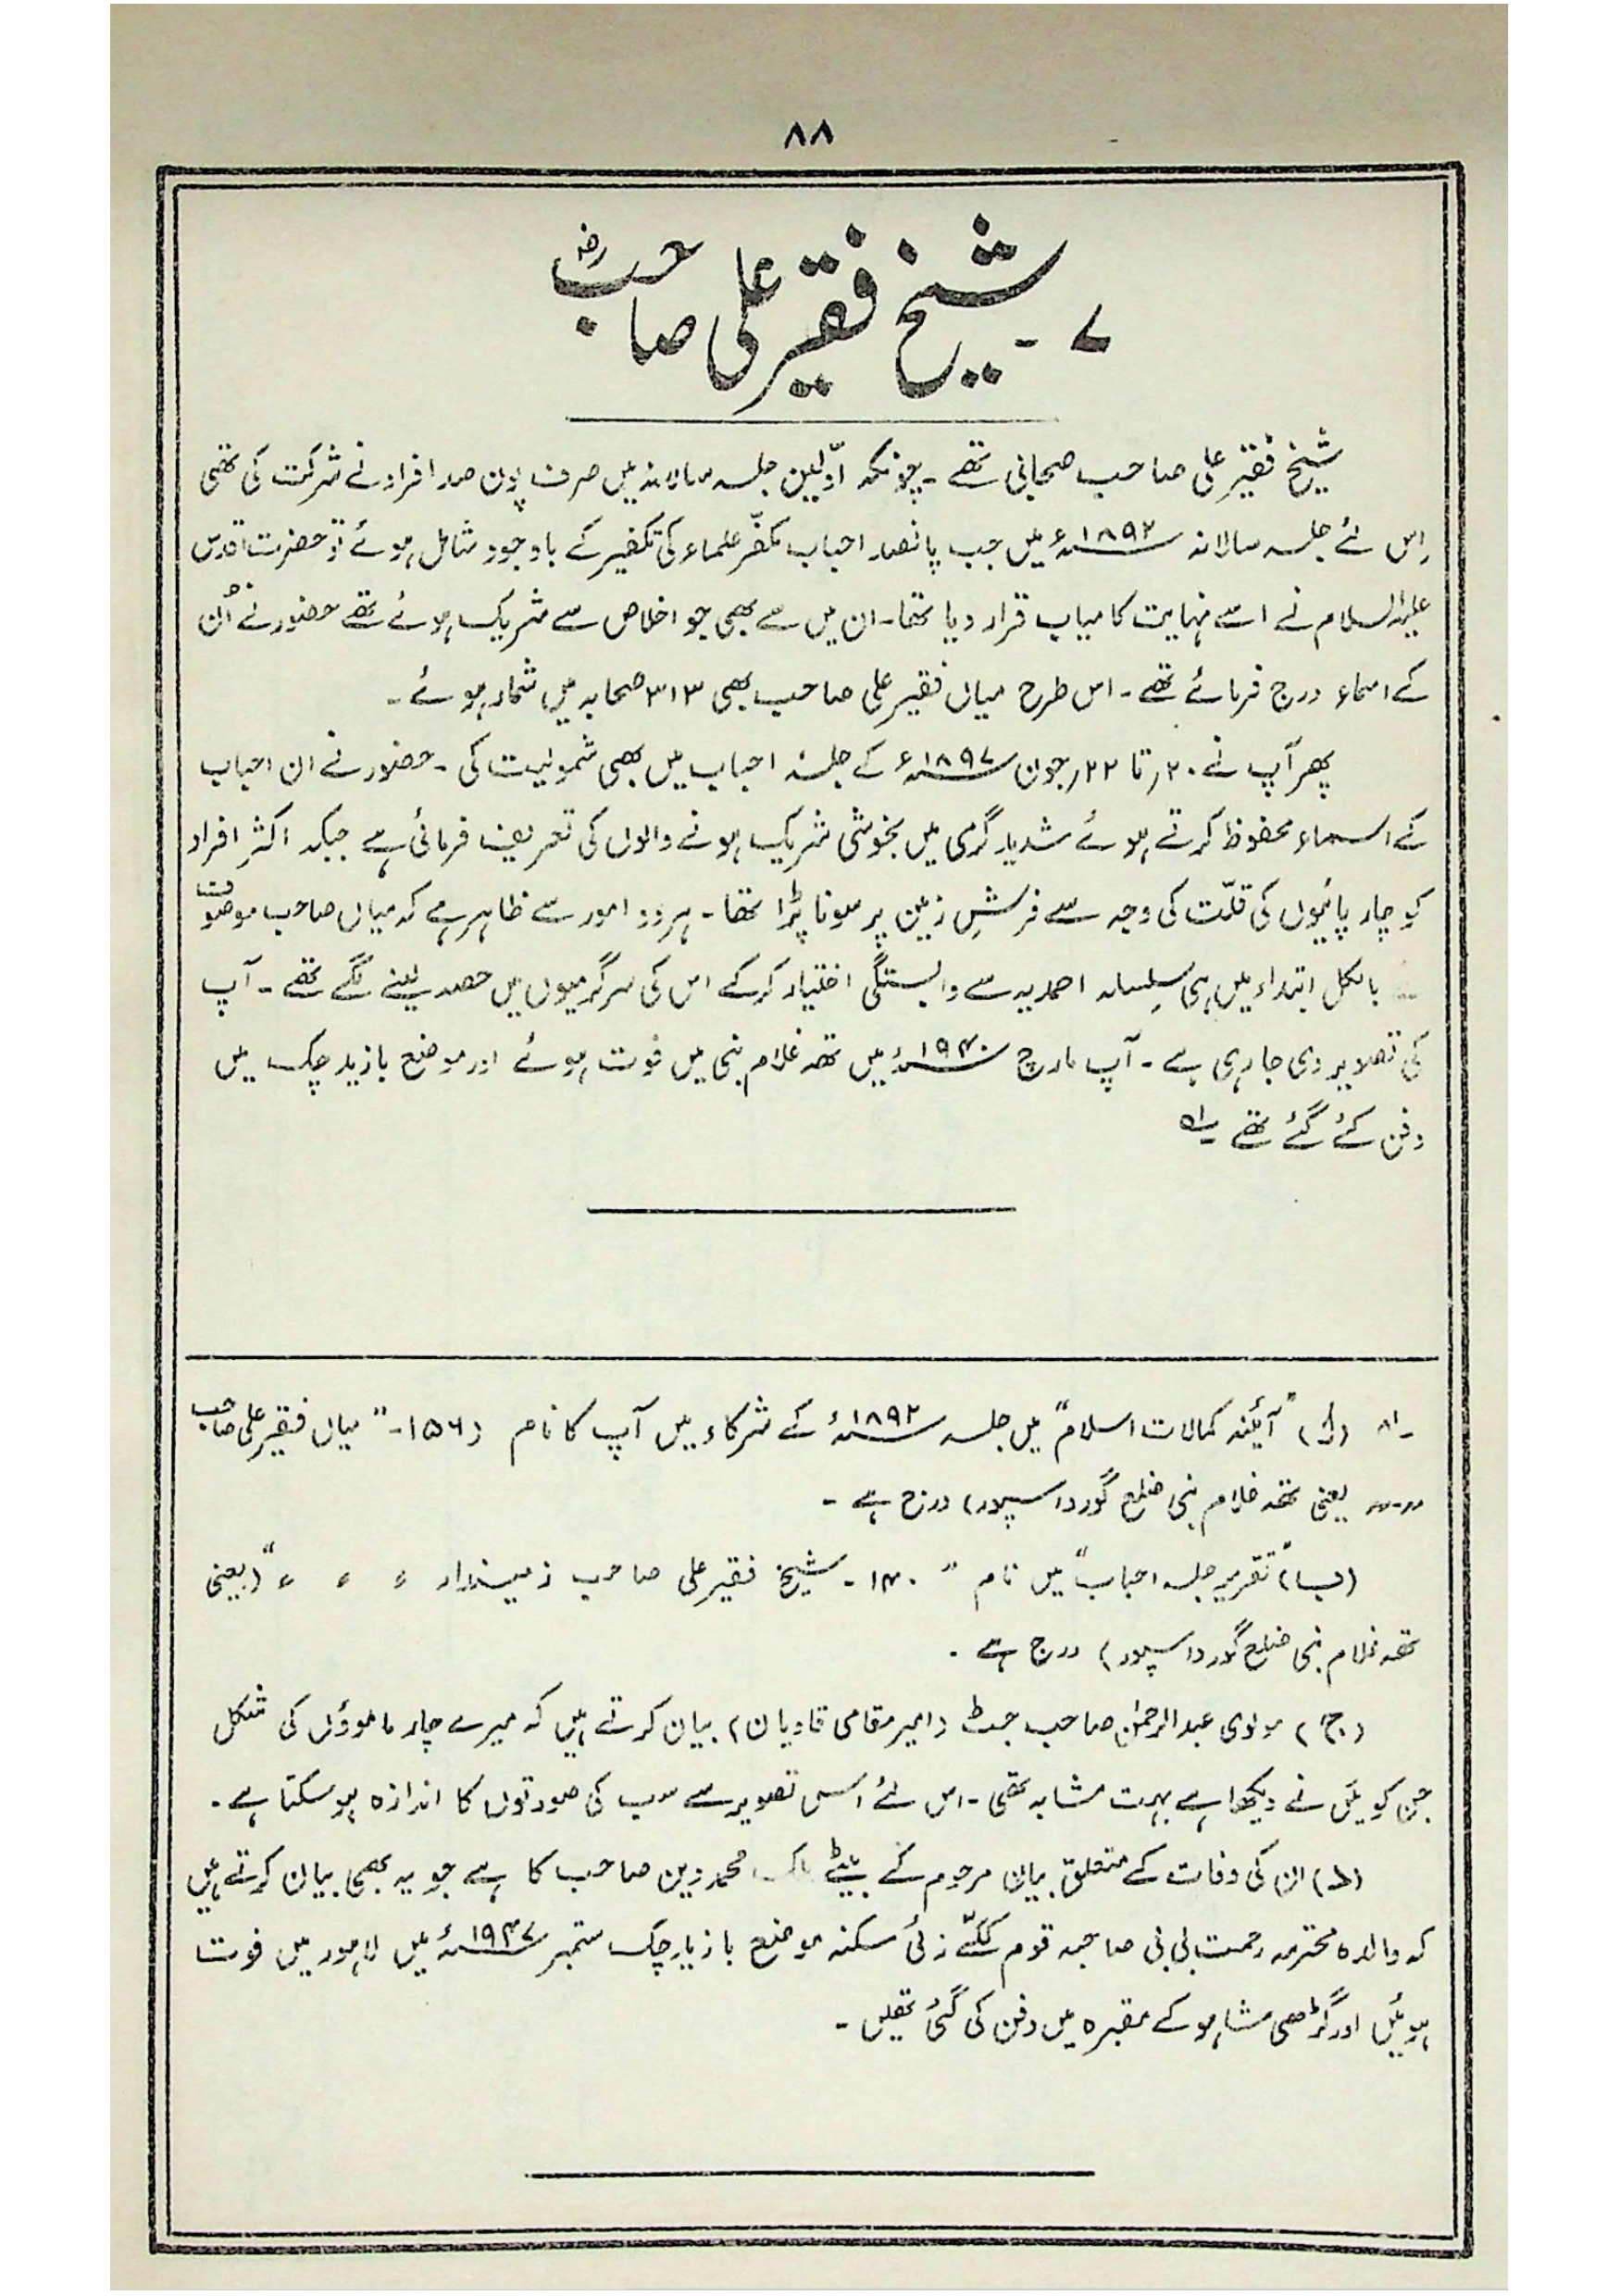 ۸۸
۷۔ شیخ فقیر علی صاحبؓ
شیخ فقیر علی صاحب صحابی تھے۔ چونکہ اوّلین جلسہ سالانہ میں صرف پون صد افراد نے شرکت کی تھی
اِس لئے جلسہ سالانہ ۱۸۹۲ء میں جب پانصد احباب مکفّر علماء کی تکفیر کے باوجود شامل ہوئے تو حضرت اقدس
علیہ السلام نے اسے نہایت کامیاب قرار دیا تھا۔ ان میں سے بھی جو اخلاص سے شریک ہوئے تھے حضور نے اُن
کے اسماء درج فرمائے تھے۔ اس طرح میاں فقیر علی صاحب بھی ۳۱۳ صحابہ میں شمار ہوئے۔
پھر آپ نے ۲۰؍ تا ۲۲؍ جون ۱۸۹۷ء کے جلسۂ احباب میں بھی شمولیت کی۔ حضور نے ان احباب
کے اسماء محفوظ کرتے ہوئے شدید گرمی میں بخوشی شریک ہونے والوں کی تعریف فرمائی ہے جبکہ اکثر افراد
کو چارپائیوں کی قلّت کی وجہ سے فرشِ زمین پر سونا پڑا تھا۔ ہر دو امور سے ظاہر ہے کہ میاں صاحب موصوف
بالکل ابتداء میں ہی سِلسلہ احمدیہ سے وابستگی اختیار کر کے اس کی سرگرمیوں میں حصہ لینے لگے تھے۔ آپ
کی تصویر دی جا رہی ہے۔ آپ مارچ ۱۹۴۰ء میں تھہ غلام نبی میں فوت ہوئے اور موضع بازید چک میں
دفن کئے گئے تھے ؎۱
؎۱ (ا) "آئینہ کمالات اسلام" میں جلسہ ۱۸۹۲ء کے شرکاء میں آپ کا نام (۱۵۶۔ "میاں فقیر علی صاحب
〃 〃 یعنی تھہ غلام نبی ضلع گورداسپور) درج ہے۔
(ب) "تقریر جلسہ احباب" میں نام "۱۴۰۔ شیخ فقیر علی صاحب زمیندار 〃 〃 〃 〃" (یعنی
تھہ غلام نبی ضلع گورداسپور) درج ہے۔
(ج) مولوی عبدالرحمٰن صاحب جٹ (امیر مقامی قادیان) بیان کرتے ہیں کہ میرے چار ماموؤں کی شکل
جن کو مَیں نے دیکھا ہے بہت مشابہ تھی۔ اس لئے اسی تصویر سے سب کی صورتوں کا اندازہ ہو سکتا ہے۔
(د) ان کی وفات کے متعلق بیان مرحوم کے بیٹے ملک محمد دین صاحب کا ہے جو یہ بھی بیان کرتے ہیں
کہ والدہ محترمہ رحمت بی بی صاحبہ قوم ککّے زئی سکنہ موضع بازید چک ستمبر ۱۹۴۷ء میں لاہور میں فوت
ہوئیں اور گڑھی شاہو کے مقبرہ میں دفن کی گئی تھیں۔